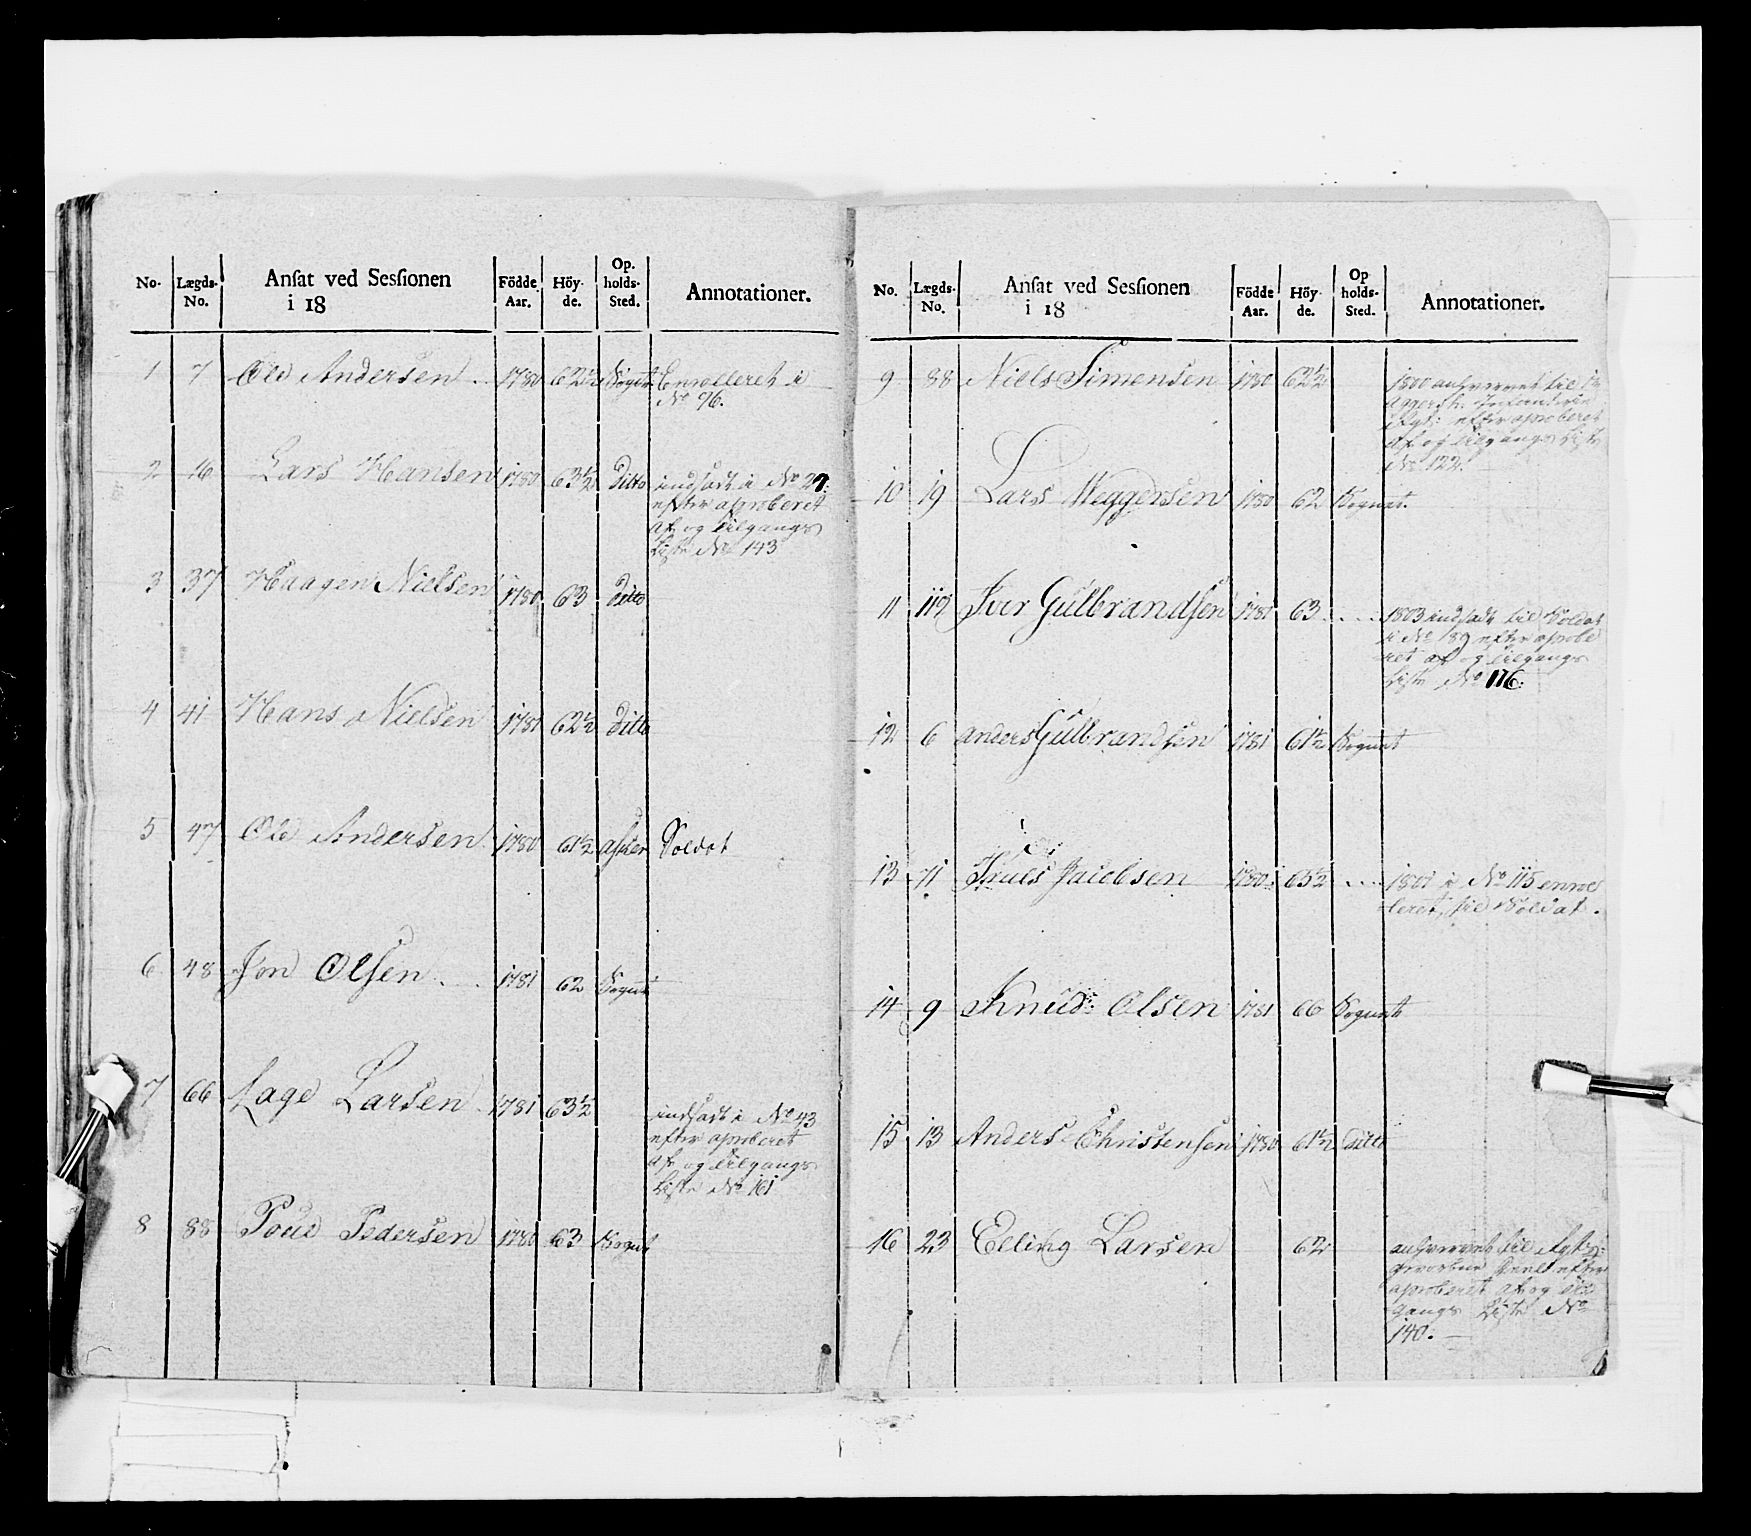 No. Lægds-No. Ansat ved Sessionen i 18 Födde Aar. Höy-de. Op-holds-Sted. Annotationer.
1 7 Ole Andersen 1780 62½ Sognet Enrolleret i
No 96.
2 16 Lars Hansen 1780 63½ Ditto indsadt i No 27:
efter aproberet
Af og Tilgangs
Liste No 143
3 37 Haagen Nielsen 1780 63 Ditto
4 41 Hans Nielsen 1781 62½ Ditto
5 47 Ole Andersen 1780 61½ Soldat
6 48 Jon Olsen 1781 62 Sognet
7 66 Lage Larsen 1781 63½ indsadt i No 43
efter aproberet
Af og Tilgangs
Liste No 161
8 88 Poul Pedersen 1780 63 Sognet
No. Lægds-No. Ansat ved Sessionen i 18 Födde Aar. Höy-de. Op holds-Sted. Annotationer.
9 88 Niels Simensen 1780 62½ 1800 anhvervet til
efter aproberet
Af og Tilgangs Liste
No 122.
10 19 Lars Weggersen 1780 62 Sognet.
11 112 Iver Gulbrandsen 1781 63 1803 indsadt til Soldat
i No 189 efter aprobe
ret af og Tilgangs
Liste No 116:
12 6 Anders Gulbrandsen 1781 61½ Sognet
13 71 Truls Jacobsen 1780 63½ 1801 i No 115 enrol
leret til Soldat.
14 9 Knud Olsen 1781 66 Sognet
15 13 Anders Christensen 1780 61½ Ditto
16 23 Elling Larsen 62 anhvervet til
efter
aproberet Af og Til
gangs Liste No
140.